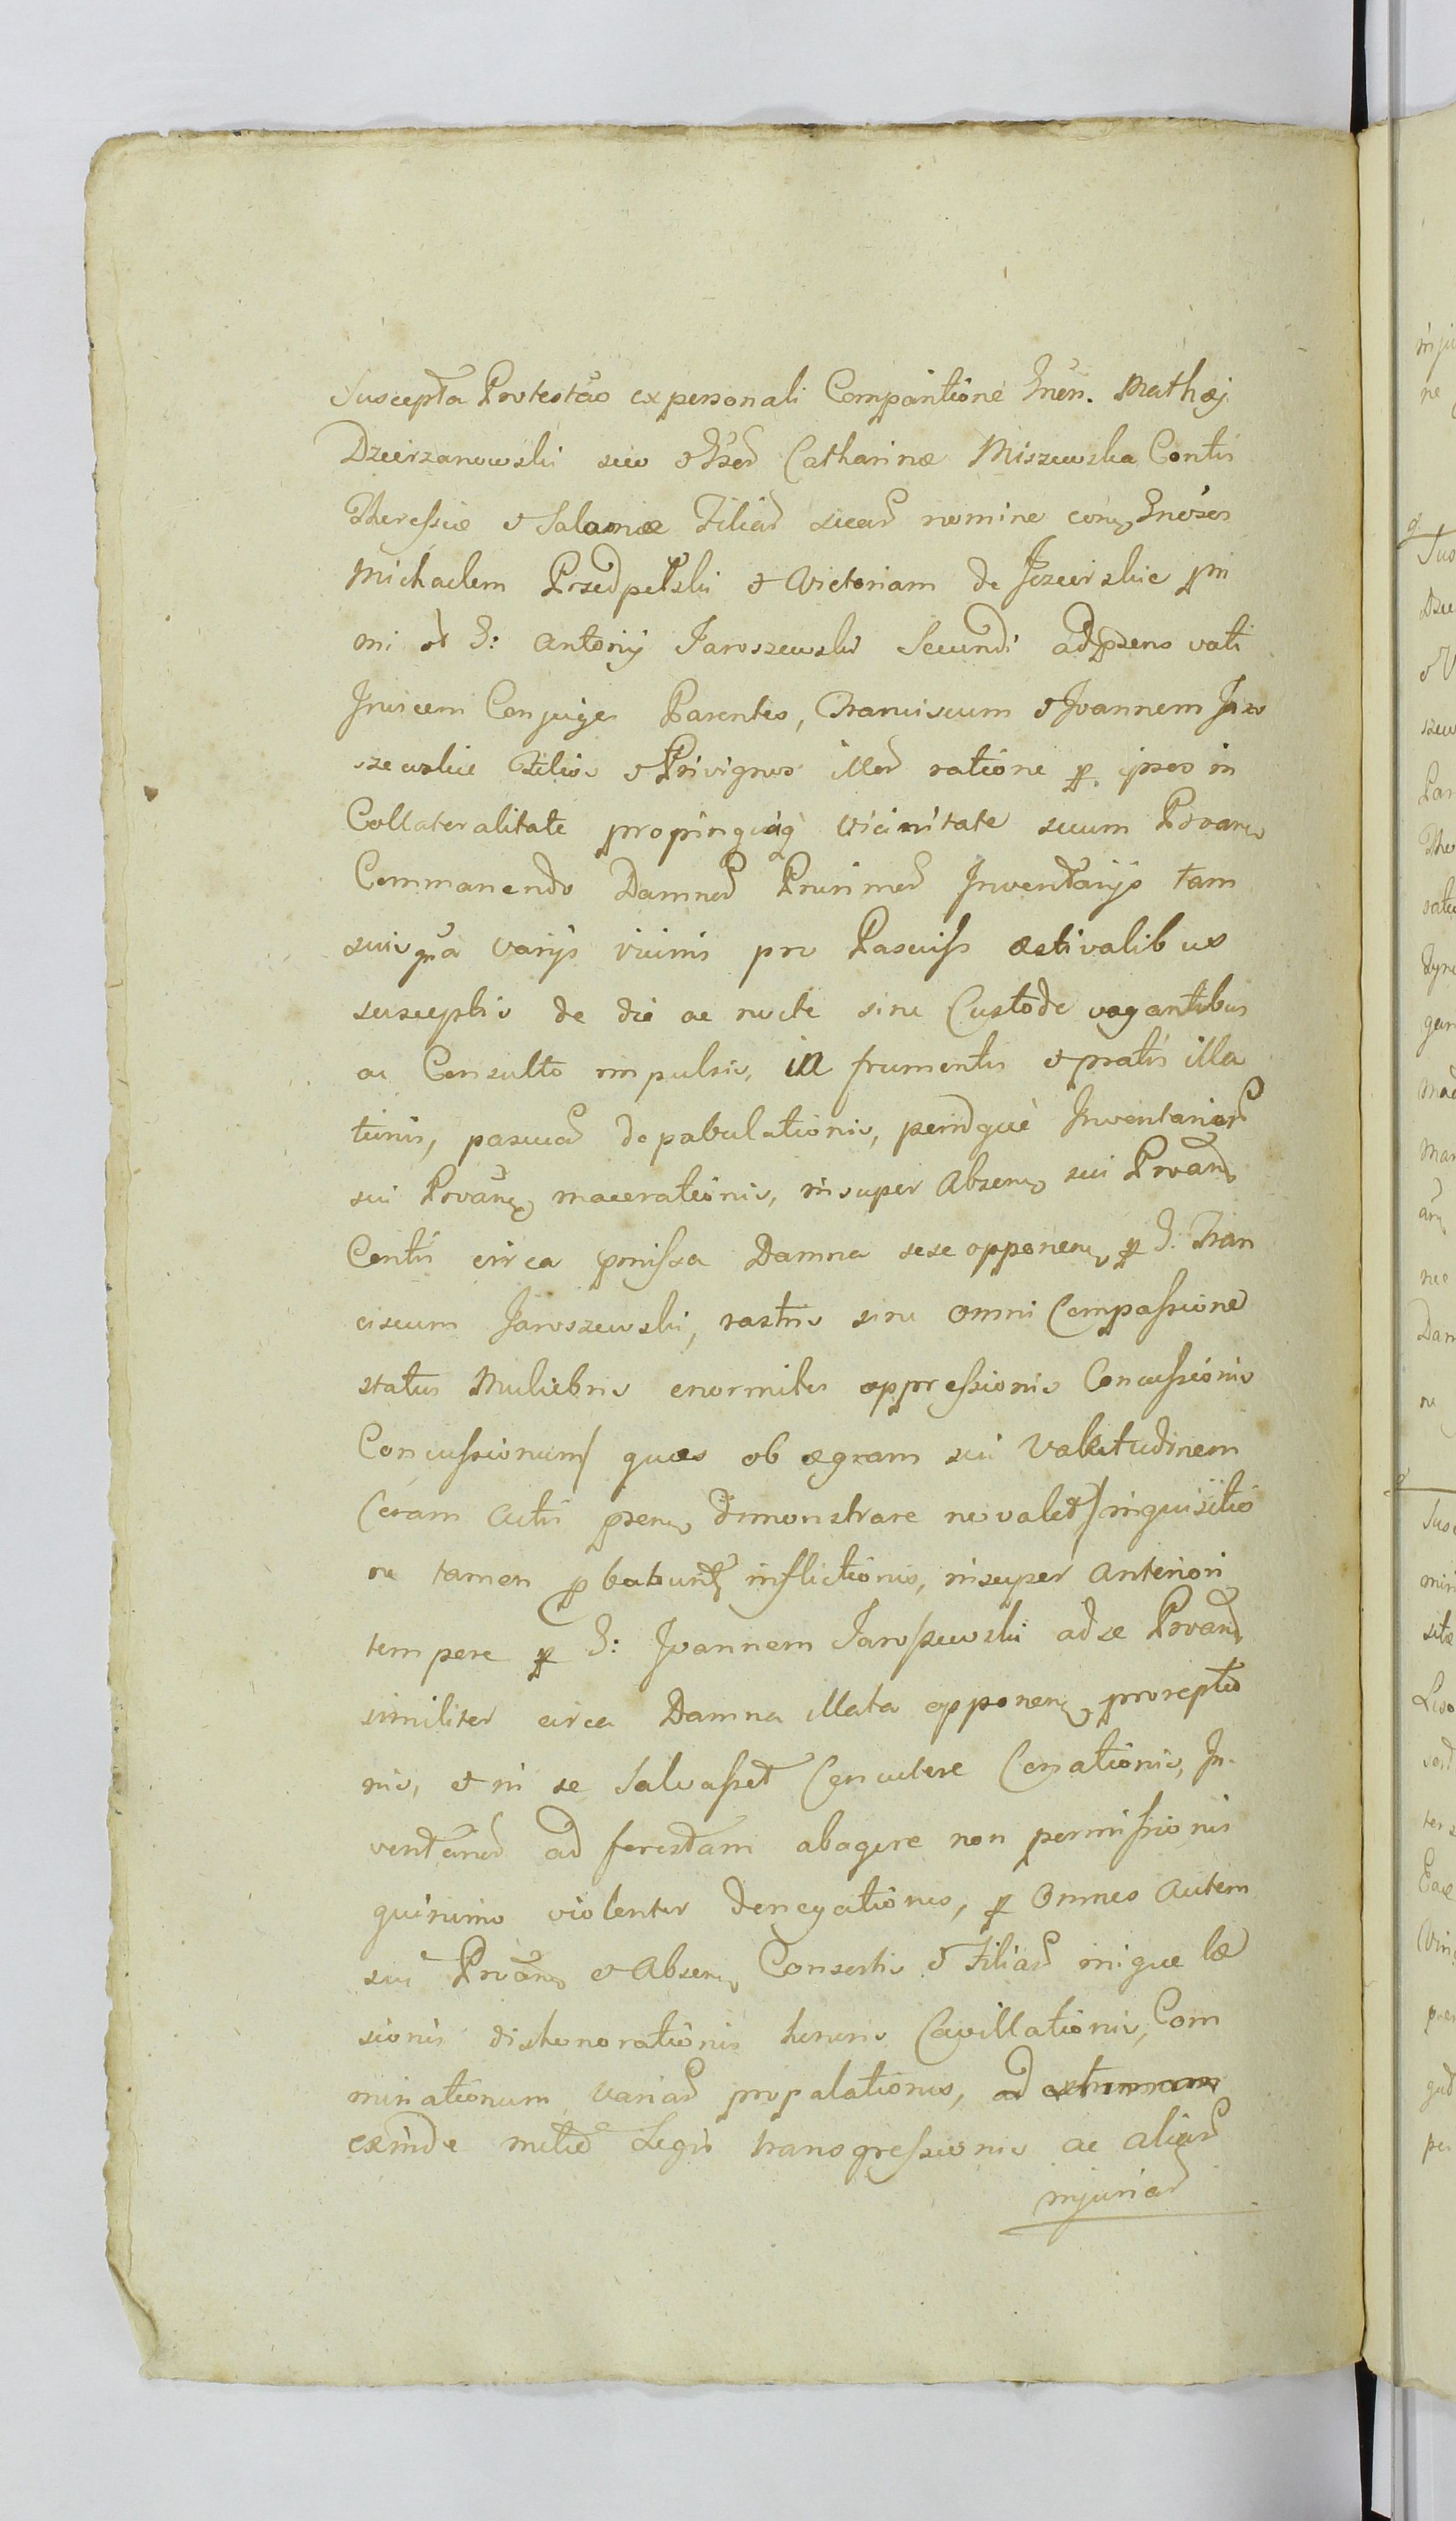 Suscepta Protestao ex personali Compantione Gnen. Mathæj
Dzierzanowski suo et Gsed Catharinæ Miszewska Contis
Theressiæ et Salomæ Filiar suar nomine cong Gnosos
Michaelem Przedpelski et Victoriam de Jezierskie pri
mi et G: Antonij Jaroszewski Secundi adpræns voti
Invicem Conjuges Parentes, Franciscum et Joannem Jaro
szewskie Filios et Privignos illor ratione p ipsos in
Collateralitate propinquaq vicinitate secum Protan
Commanendo Damnor Plurimor Inventarijs tam
suis qa varijs vicinis pro Pascuiss æstivalibus
susceptis de die ac nocte sine Custode vagantibus
ac Consulto impulsis, in frumentis et pratis illa
tionis, pascuar depabulationis, perindque Inventarior
sui Protan macerationis, insuper Absen sui Protan
Contis circa pmissa Damna sese opponen p G. Fran
ciscum Jaroszewski, rastris sine omni Compassione
status Muliebris enormiter oppressionis Concussionis
Concussionum/ quas ob ægram sui Valetudinem
Coram Actis psen demonstrare ne valet/ inquisitio
ne tamen pbabunt inflictionis, insuper anteriori
tempore p G: Joannem Jaroszewski ad se Protan
similiter circa Damna illata opponen proreptio
nis, et ni se salvasset Concutere Conationis, In-
ventarior ad forestam abagere non permissionis
quinimo violenter denegationis, p Omnes autem
sui Protan et Absen Consortis et Filiar inique læ
sionis dishonorationis honoris Cavillationis, Com
minationum variar propalationis,
exinde metio Legis transgressionis ac aliar
injuriar